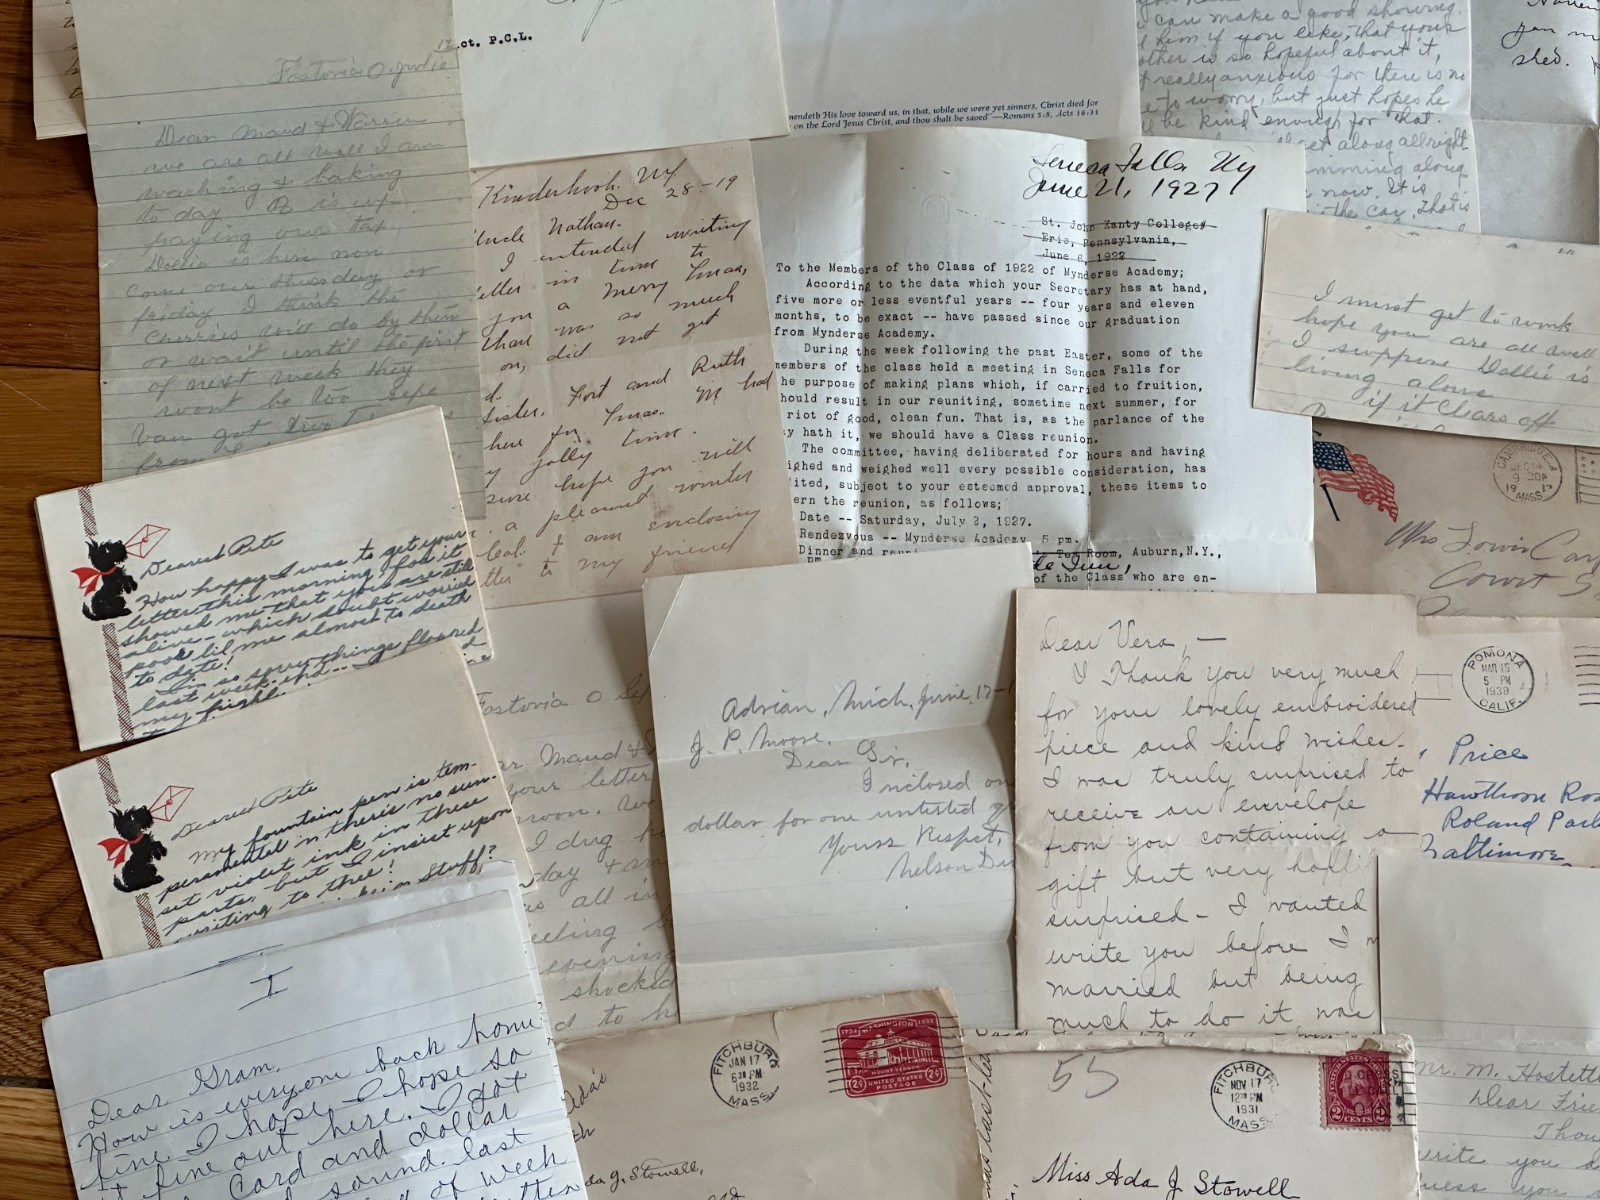 Fostoria O.
Dear Maud & Warren
we are all well I am
washing & baking
to day R is up
paying our tax.
Dollie is here now
come over thursday or
friday I think the
cherries will do by then
or wait until the first
of next week they
wont be too ripe
ct. P.C.L.
mendeth His love toward us, in that, while we were yet sinners, Christ died for
on the Lord Jesus Christ, and thou shalt be saved"—Romans 5:8, Acts 16:31
can make a good showing.
him if you like, that your
other is so hopeful about it,
really anxious for there is no
to worry, but just hopes he
be kind enough for that.
get along allright
mming along
now. It is
the car. That is
shed.
Kinderhook. NY.
Dec 28-19
Uncle Nathan.
I intended writing
letter in time to
you a Merry Xmas,
there was so much
on, did not get
d.
Sister, Fort and Ruth
here for Xmas. We had
jolly time.
sure hope you will
a pleasant winter
I am enclosing
to my friend
Seneca Falls, Ny
June 21, 1927
St. John Kanty College
Erie, Pennsylvania,
June 6, 1922
To the Members of the Class of 1922 of Mynderse Academy;
According to the data which your Secretary has at hand,
five more or less eventful years -- four years and eleven
months, to be exact -- have passed since our graduation
from Mynderse Academy.
During the week following the past Easter, some of the
members of the class held a meeting in Seneca Falls for
the purpose of making plans which, if carried to fruition,
should result in our reuniting, sometime next summer, for
riot of good, clean fun. That is, as the parlance of the
y hath it, we should have a Class reunion.
The committee, having deliberated for hours and having
ighed and weighed well every possible consideration, has
lited, subject to your esteemed approval, these items to
ern the reunion, as follows;
Date -- Saturday, July 2, 1927.
Rendezvous -- Mynderse Academy, 5 pm.
Dinner and reuni
Tea Room, Auburn, N.Y.,
Inn,
of the Class who are en-
I must get to work
hope you are all well
I suppose Dollie is
living alone
if it clears off
CAMBRIDGE
9 30P
MASS.
Mrs Lewis
Court
Dearest Pete
How happy I was to get your
letter this morning for it
showed me that you are still
alive - which doubt worried
poor lil me almost to death
to date!
I'm so sorry things floored
last week-end --
my fright.
Dearest Pete
My fountain pen is tem-
permental'n there's no sun-
set violet ink in these
parts, but I insist upon
writing to thee!
Stuff?
Fostoria O
Maud &
your letter
I dug
day &
as all in
evening
shocked
to
Adrian, Mich, June, 17-
J. P. Moore.
Dear Sir,
I inclosed on
dollar for one untested
Yours Respect,
Nelson
Dear Vera, —
I Thank you very much
for your lovely embroidered
piece and kind wishes.
I was truly surprised to
receive an envelope
from you containing a
gift but very happily
surprised - I wanted
write you before I
married but being
much to do it was
POMONA
MAR 15
5 PM
1930
CALIF.
Price
Hawthorn
Roland Park
Baltimore
I
Dear Gram,
How is everyone back home
fine I hope. I hope so
fine out here. I got
card and dollar
sound. last
of week
FITCHBURG
JAN 17
6 30 PM
1932
MASS.
1732 WASHINGTON 1932
MOUNT VERNON
2¢ UNITED STATES 2¢
POSTAGE
da J. Stowell,
55
FITCHBURG
NOV 17
12 PM
1931
MASS.
2 CENTS 2
Miss Ada J. Stowell
Mr. M.
Dear
write you